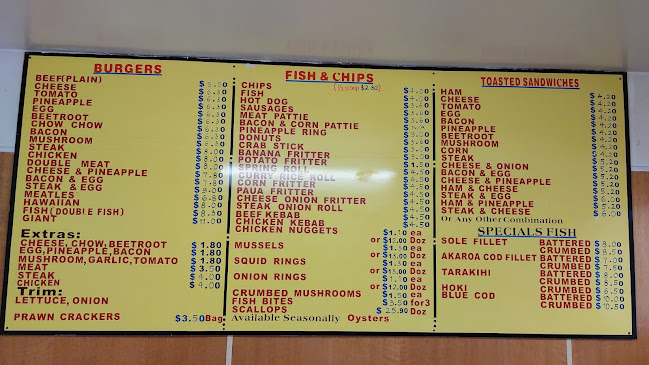 BURGERS
BEEF(PLAIN) $5.50
CHEESE $6.30
TOMATO $6.30
PINEAPPLE $6.30
EGG $6.30
BEETROOT $6.30
CHOW CHOW $6.30
BACON
MUSHROOM
STEAK $8.00
CHICKEN $8.00
DOUBLE MEAT
CHEESE & PINEAPPLE
BACON & EGG $7.80
STEAK & EGG $9.00
MEATLES $6.80
HAWAIIAN $8.00
FISH(DOUBLE FISH) $8.50
GIANT $11.00
Extras:
CHEESE, CHOW, BEETROOT $1.80
EGG, PINEAPPLE, BACON $1.80
MUSHROOM, GARLIC, TOMATO $1.80
MEAT $3.50
STEAK $4.00
CHICKEN $4.00
Trim:
LETTUCE, ONION
PRAWN CRACKERS $3.50 Bag
FISH & CHIPS
(½ scoop $2.80)
CHIPS $4.00
FISH
HOT DOG
SAUSAGES
MEAT PATTIE
BACON & CORN PATTIE
PINEAPPLE RING
DONUTS
CRAB STICK
BANANA FRITTER
POTATO FRITTER
SPRING ROLL
CURRY RICE ROLL
CORN FRITTER
PAUA FRITTER
CHEESE ONION FRITTER
STEAK ONION ROLL
BEEF KEBAB $4.50
CHICKEN KEBAB $4.50
CHICKEN NUGGETS
$1.10 ea
MUSSELS or $12.00 Doz
$1.30 ea
SQUID RINGS or $13.00 Doz
$1.30 ea
ONION RINGS or $13.00 Doz
$1.10 ea
or $12.00 Doz
CRUMBED MUSHROOMS $1.50 ea
FISH BITES $3.50 for3
SCALLOPS $25.90 Doz
Available Seasonally Oysters
TOASTED SANDWICHES
HAM $4.20
CHEESE $4.20
TOMATO $4.20
EGG $4.20
BACON $4.20
PINEAPPLE $4.20
BEETROOT $4.20
MUSHROOM $4.20
CORN $4.20
STEAK
CHEESE & ONION $5.20
BACON & EGG $5.20
CHEESE & PINEAPPLE $5.20
HAM & CHEESE $5.20
STEAK & EGG
HAM & PINEAPPLE $5.20
STEAK & CHEESE $6.00
Or Any Other Combination
SPECIALS FISH
SOLE FILLET BATTERED $8.00
CRUMBED $8.50
AKAROA COD FILLET BATTERED $7.00
CRUMBED $7.50
TARAKIHI BATTERED $8.00
CRUMBED $8.50
HOKI CRUMBED $6.50
BLUE COD BATTERED $10.00
CRUMBED $10.50